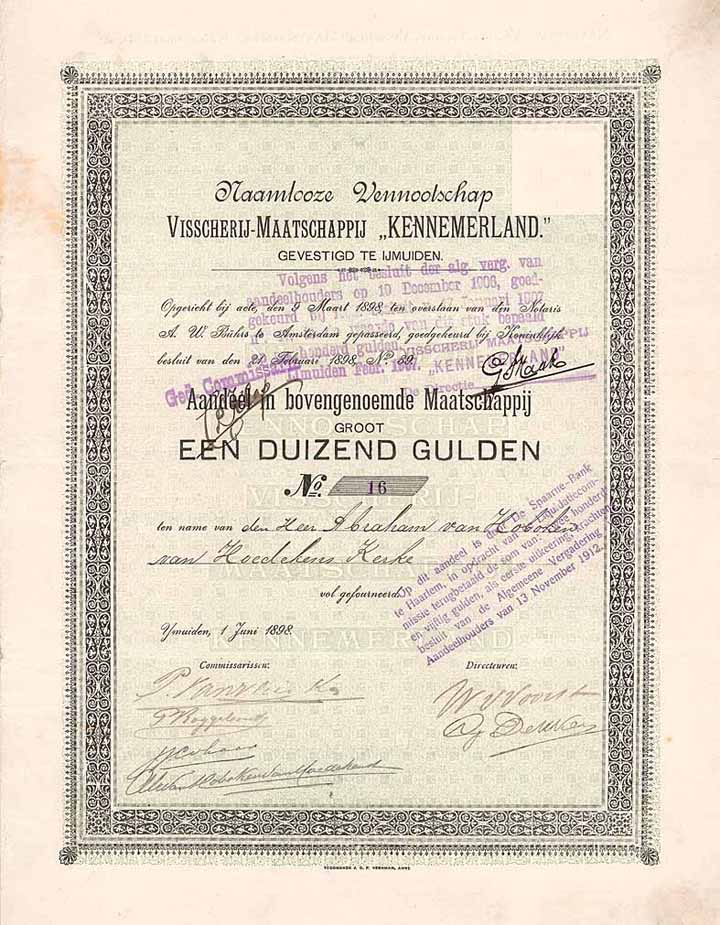 Naamlooze Vennootschap
VISSCHERIJ-MAATSCHAPPIJ „KENNEMERLAND.”
GEVESTIGD TE IJMUIDEN.
Volgens het besluit der alg. verg. van
aandeelhouders op 10 December 1906, goed-
gekeurd bij
Opgericht bij acte, den 9 Maart 1898, ten overstaan van den Notaris
A. W. Bührs te Amsterdam gepasseerd, goedgekeurd bij Koninklijk
besluit van den 21 Februari 1898, No. 59.
honderd gulden.
VISSCHERIJ MAATSCHAPPIJ
IJmuiden Febr. 1907. „KENNEMERLAND”
De Directie
Ged. Commissaris
Aandeel in bovengenoemde Maatschappij
GROOT
EEN DUIZEND GULDEN
No. 16
ten name van den Heer Abraham van Hoboken
van Hoedekens Kerke
vol gefourneerd.
Op dit aandeel is door de Spaarne-Bank
te Haarlem, in opdracht van de liquidatiecom-
missie terugbetaald de som van honderd
en vijftig gulden, als eerste uitkeering, krachtens
besluit van de Algemeene Vergadering
Aandeelhouders van 13 November 1912.
Ymuiden, 1 Juni 1898.
NAAMLOOZE
VENNOOTSCHAP
VISSCHERIJ-
MAATSCHAPPIJ
KENNEMERLAND
Commissarissen:
Directeuren: